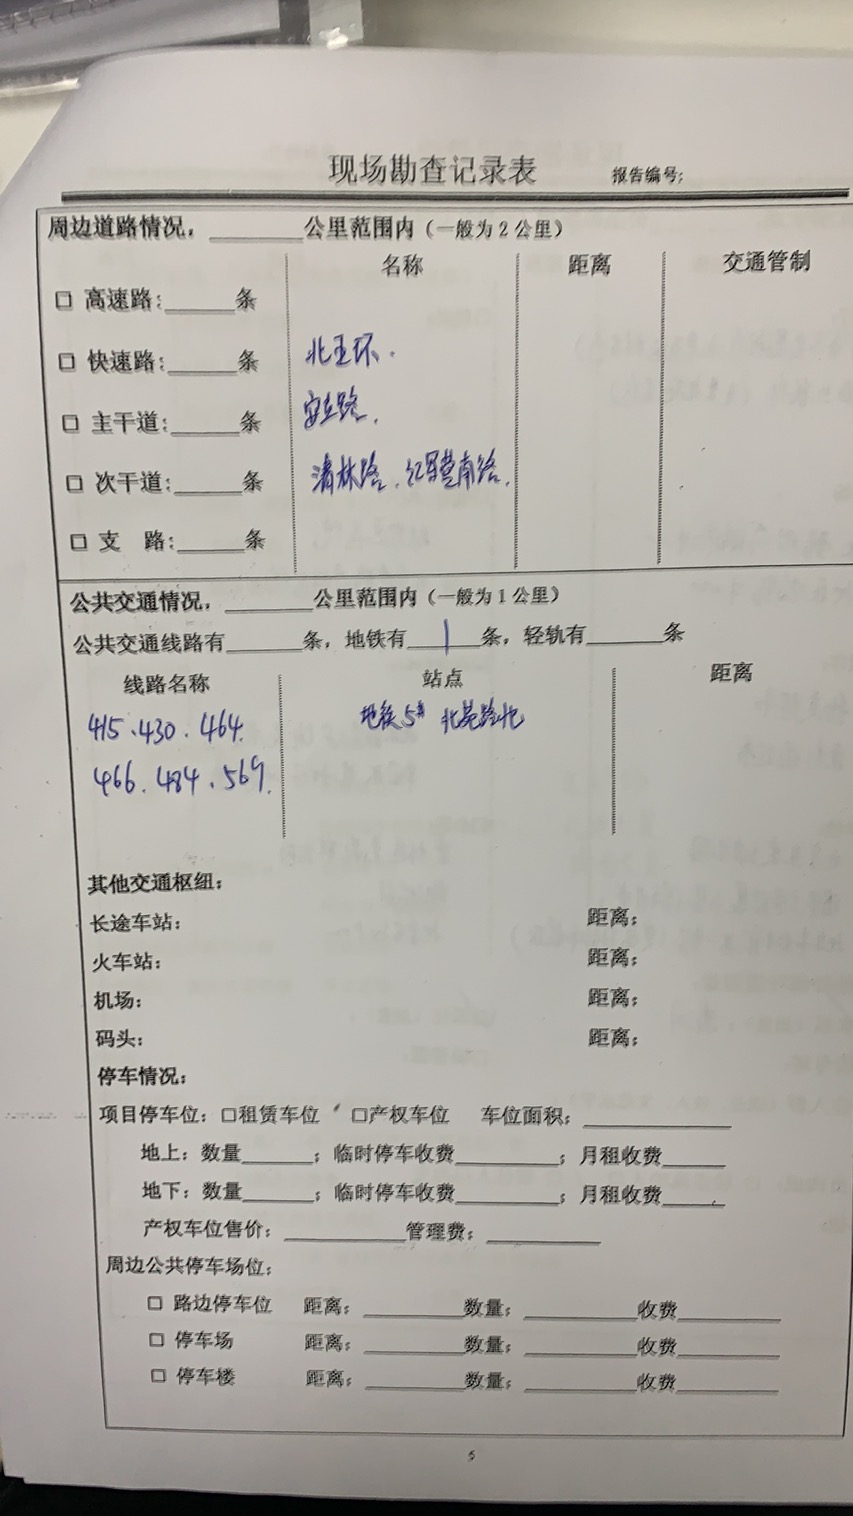 现场勘查记录表 报告编号:
周边道路情况，________公里范围内（一般为2公里）
名称 距离 交通管制
□ 高速路:______条
□ 快速路:______条 北五环.
□ 主干道:______条 安立路.
□ 次干道:______条 清林路、红军营南路.
□ 支 路:______条
公共交通情况，________公里范围内（一般为1公里）
公共交通线路有______条，地铁有___1___条，轻轨有______条
线路名称 站点 距离
415、430、464. 地铁5# 北苑路北
466、484、569.
其他交通枢纽:
长途车站: 距离:
火车站: 距离:
机场: 距离:
码头: 距离:
停车情况:
项目停车位: □租赁车位 □产权车位 车位面积: ____________
地上: 数量______; 临时停车收费________; 月租收费_____
地下: 数量______; 临时停车收费________; 月租收费_____
产权车位售价: __________管理费: _________
周边公共停车场位:
□ 路边停车位 距离: ________数量: _________收费________
□ 停车场 距离: ________数量: _________收费________
□ 停车楼 距离: ________数量: _________收费________
5